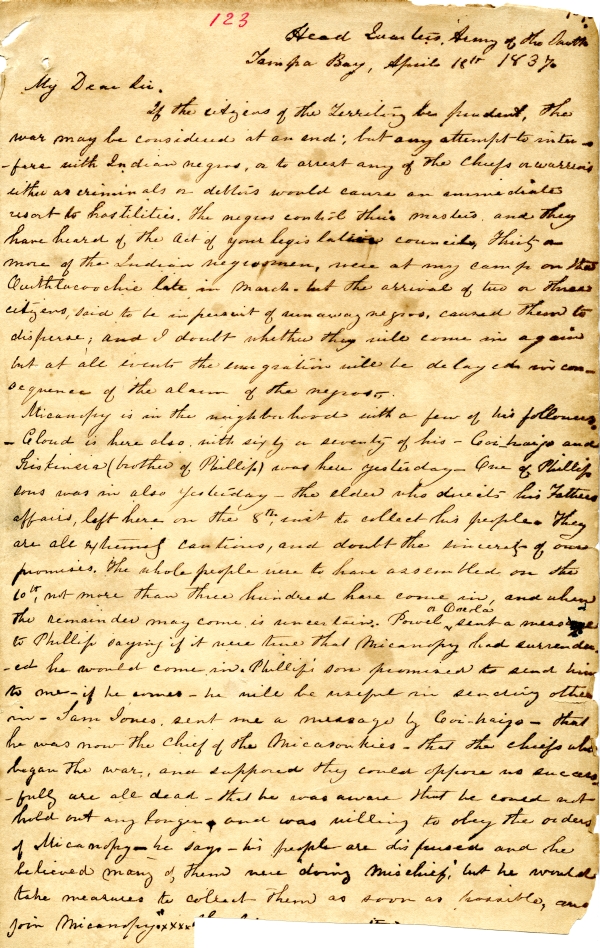 123
Head Quarters, Army of the South
Tampa Bay, April 11th 1837.
My Dear Sir.
If the citizens of the Territory be prudent, the
war may be considered at an end; but any attempt to inter-
-fere with Indian negros, or to arrest any of the Chiefs or warriors
either as criminals or debtors would cause an immediate
resort to hostilities. The negros control their masters, and they
have heard of the act of your legislative council, Thirty or
more of the Indian negro women, were at my camp on the
Quithlacoochie late in March. but the arrival of two or three
citizens, said to be in pursuit of runaway negros, caused them to
disperse; and I doubt whether they will come in again
but at all events the emigration will be delayed in con-
sequence of the alarm of the negros.
Micanopy is in the neighborhood with a few of his followers
- Cloud is here also, with sixty or seventy of his - Coi-haigo and
(brother of Phillip) was here yesterday - One of Phillips
sons was in also yesterday - the elder who directs his Fathers
affairs, left here on the 8th, to collect his people. They
are all extremely cautious, and doubt the sincerety of our
promises. The whole people were to have assembled on the
10th, not more than three hundred have come in, and when
the remainder may come is uncertain. Powel or Oseola sent a message
to Phillip saying if it were true that Micanopy had surrender-
-ed he would come in. Phillip's son promised to send him
to me - if he comes - he will be useful in sending others
in - Sam Jones, sent me a message by Coi-haigo - that
he was now the Chief of the Micasonkies - that the chiefs who
began the war, and supposed they could oppose us success-
-fully are all dead - that he was aware that he coued not
hold out any longer, and was willing to obey the orders
of Micanopy - he says - his people are dispersed and he
believed many of them were doing mischief, but he would
take measures to collect them as soon as possible, and
join Micanopy" xxxx